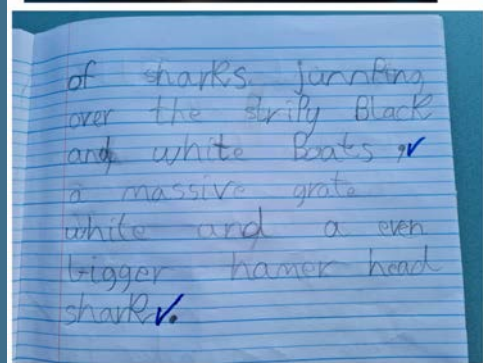 of sharks. jumping
over the stripy Black
and white Boats ,
a massive grate
white and a even
bigger hamer head
shark.